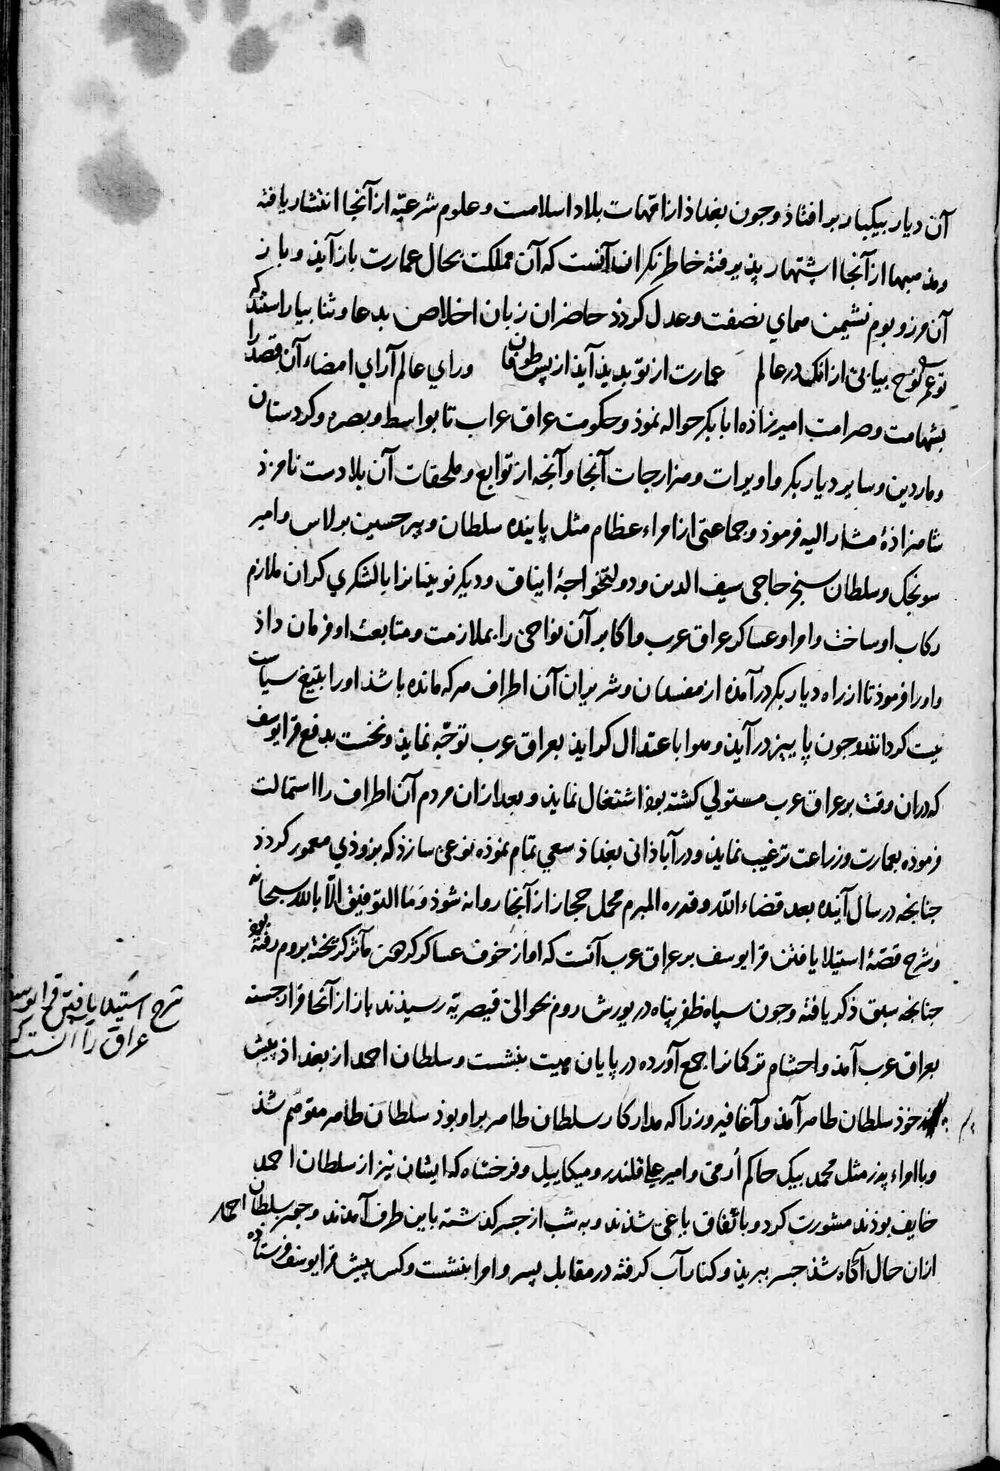 آن دیار بیکبار بر افتاذ و جون بغداذ از امّهات بلاد اسلامست و علوم شرعیّه از آنجا انتشار یافته
ومذهبها از آنجا اشتهار پذیرفته خاطر نکران آنست که آن مملکت بحال عمارت باز آیذ و باز
آن مرز و بوم نشیمن همای نصفت و عدل کردذ حاضران زبان اخلاص بدعا و ثنا بیاراستند که
تو عمر نوح بیابی از انک در عالم عمارت از تو بدید آید از پس طوفان ورای عالم آرای امضاء آن قصد را
بشهامت و صرامت امیرزاده ابابکر حواله نموذ و حکومت عراق عرب تا بواسط و بصره و کردستان
و ماردین و سایر دیار بکر و اویرات و هزارجات آنجا و آنجه از توابع و ملحقات آن بلادست نامزد
شاهزاذۀ مشار الیه فرموذ و جماعتی از امراء عظام مثل پاینده سلطان و پیر حسین برلاس و امیر
سونجک و سلطان سنجر حاجی سیف الدین و دولتخواجۀ ایناق و دیکر نوینانرا با لشکری کران ملازم
رکاب او ساخت و امرا و عساکر عراق عرب و اکابر آن نواحی را بملازمت و متابعت او فرمان داذ
و او را فرموذ تا از راه دیار بکر درآمده از مفسدان و شریران آن اطراف هر که مانده باشذ او را بتیغ سیاست
نیست کردانند و جون پاییز درآیذ و هوا باعتدال کرایذ بعراق عرب توجّه نمایذ و نخست بدفع قرایوسف
که دران وقت بر عراق عرب مستولی کشته بوذ اشتغال نمایذ و بعد ازان مردم آن اطراف را استمالت
فرموده بعمارت و زراعت ترغیب نماید و در آباذانی بغداذ سعی تمام نموذه نوعی سازد که بزوذی معمور کردذ
جنانجه در سال آینده بعد قضاء الله و قدره المبرم محمل حجاز از آنجا روانه شوذ و ما التوفیق الّا بالله سبحانه
و شرح قصّۀ استیلا یافتن قرایوسف بر عراق عرب آنست که او از خوف عساکر کردون مآثر کریخته بروم رفته بوذ
جنانجه سبق ذکر یافته و جون سپاه ظفر پناه در یورش روم بحوالی قیصریّه رسیذند باز از آنجا فرار جسته
بعراق عرب آمذ و احشام ترکمانرا جمع آورده در پایان هیت بنشست و سلطان احمد از بغداد پیش
خوذ سلطان طاهر آمذ و آغا فیروز را که مدار کار سلطان طاهر بر او بوذ سلطان طاهر متوهّم شذ
و با امراء پدر مثل محمد بیک حاکم اُرمی و امیر علی قلندر و میکاییل و فرخشاه که ایشان نیز از سلطان احمد
خایف بوذند مشورت کرد و باتّفاق یاغی شذند و به شب از جسر کذشته باین طرف آمدند و جون سلطان احمد
ازان حال آکاه شذ جسر ببرید و کنار آب کرفته در مقابل پسر و امرا بنشست و کس پیش قرایوسف فرستاده
شرح استیلا یافتن قرایوسف
عراق را آنست که